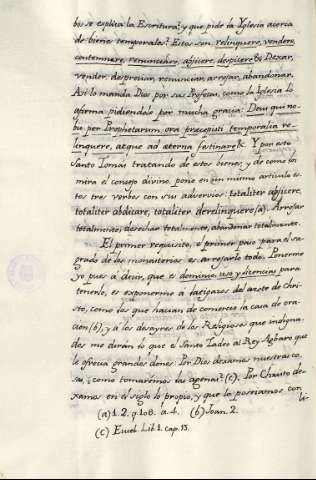 bos se explica la Escritura? y que pide la Yglesia acerca
de bienes temporales? Estos son relinquere, vendere,
contemnere, renunciare, abjicere, despicere &. Dexar,
vender, despreciar, renunciar, arrojar, abandonar.
Asi lo manda Dios por sus Profetas, como la Iglesia lo
afirma pidiendolo por mucha gracia: Deus qui no-
bis per Prophetarum ora præcepisti temporalia re-
linquere, atque ad æterna festinare &. Y por esto
Santo Tomás tratando de estos bienes, y de como los
mira el consejo divino, pone en un mismo articulo es-
tos tres verbos con sus adverbios: totaliter abjicere,
totaliter abdicare, totaliter derelinquere (a). Arrojar
totalmente, desechar totalmente, abandonar totalmente.
El primer requisito, o primer paso para el sa-
grado de los monasterios es arrojarlo todo. Ponerme
yo pues a decir, que es dominio, uso y licencias para
tenerlo, es exponerme á latigazos del azote de Chris-
to, como los que hacian de comercio la casa de ora-
cion (b), y a los desayres de los Religiosos que indigna-
dos me dirán lo que el Santo Tadeo al Rey Agbaro que
le ofrecia grandes dones. Por Dios dexamos nuestras co-
sas, ¿como tomarémos las agenas? (c). Por Christo de-
xamos en el siglo lo propio, y que lo poseiamos con
li-
(a) 1. 2. q. 108. a. 4. (b) Joan. 2.
(c) Euseb. Lib. 1. cap. 13.